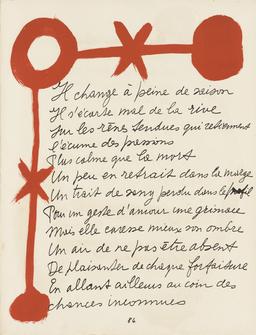 Il change à peine de saison
Il s'écarte mal de la rive
Sur les rênes tendues qui retiennent
l'écume des passions
Plus calme que la mort
Un peu en retrait dans la marge
Un trait de sang perdu dans le profil
Pour un geste d'amour une grimace
Mais elle caresse mieux son ombre
Un air de ne pas être absent
De plaisanter de chaque forfaiture
En allant ailleurs au coin des
chances inconnues
86